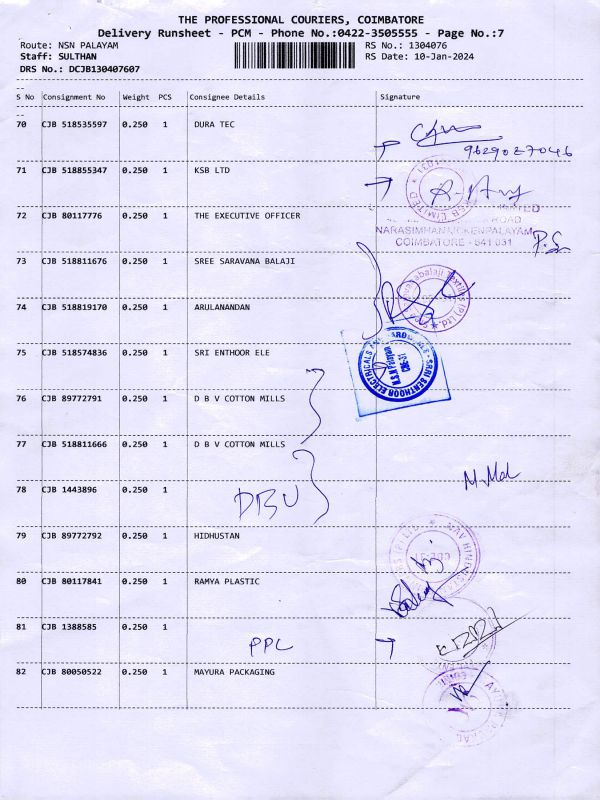 THE PROFESSIONAL COURIERS, COIMBATORE
Delivery Runsheet - PCM - Phone No.:0422-3505555 - Page No.:7
Route: NSN PALAYAM
Staff: SULTHAN
DRS No.: DCJB130407607
RS No.: 1304076
RS Date: 10-Jan-2024
S No Consignment No Weight PCS Consignee Details Signature
70 CJB 518535597 0.250 1 DURA TEC
9629027046
71 CJB 518855347 0.250 1 KSB LTD
KSB LIMITED
72 CJB 80117776 0.250 1 THE EXECUTIVE OFFICER
ROAD
NARASIMHANAICKENPALAYAM
COIMBATORE - 641 031
73 CJB 518811676 0.250 1 SREE SARAVANA BALAJI
74 CJB 518819170 0.250 1 ARULANANDAN
75 CJB 518574836 0.250 1 SRI ENTHOOR ELE
SRI SENTHOOR ELECTRICALS AND HARDWARES
76 CJB 89772791 0.250 1 D B V COTTON MILLS
77 CJB 518811666 0.250 1 D B V COTTON MILLS
78 CJB 1443896 0.250 1 DBV
79 CJB 89772792 0.250 1 HIDHUSTAN
80 CJB 80117841 0.250 1 RAMYA PLASTIC
81 CJB 1388585 0.250 1 PPL
82 CJB 80050522 0.250 1 MAYURA PACKAGING